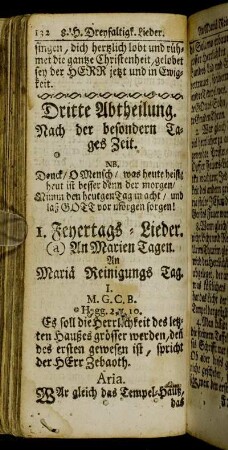 132 8. H. Dreyfaltigk. Lieder.
singen, dich hertzlich lobt und rüh-
met die gantze Christenheit, gelobet
sey der HERR jetzt und in Ewig-
keit.
Dritte Abtheilung.
Nach der besondern Ta-
ges Zeit.
NB.
Denck/ O Mensch/ was heute heist/
heut ist besser denn der morgen/
Nimm den heutgen Tag in acht/ und
laß GOTT vor morgen sorgen!
1. Feyertags-Lieder.
(a) An Marien Tagen.
An
Mariä Reinigungs Tag.
I.
M. G. C. B.
Hagg. 2. v. 10.
Es soll die Herrlichkeit des letz-
ten Haußes grösser werden, denn
des ersten gewesen ist, spricht
der HErr Zebaoth.
Aria.
WAr gleich das Tempel-Hauß,
das